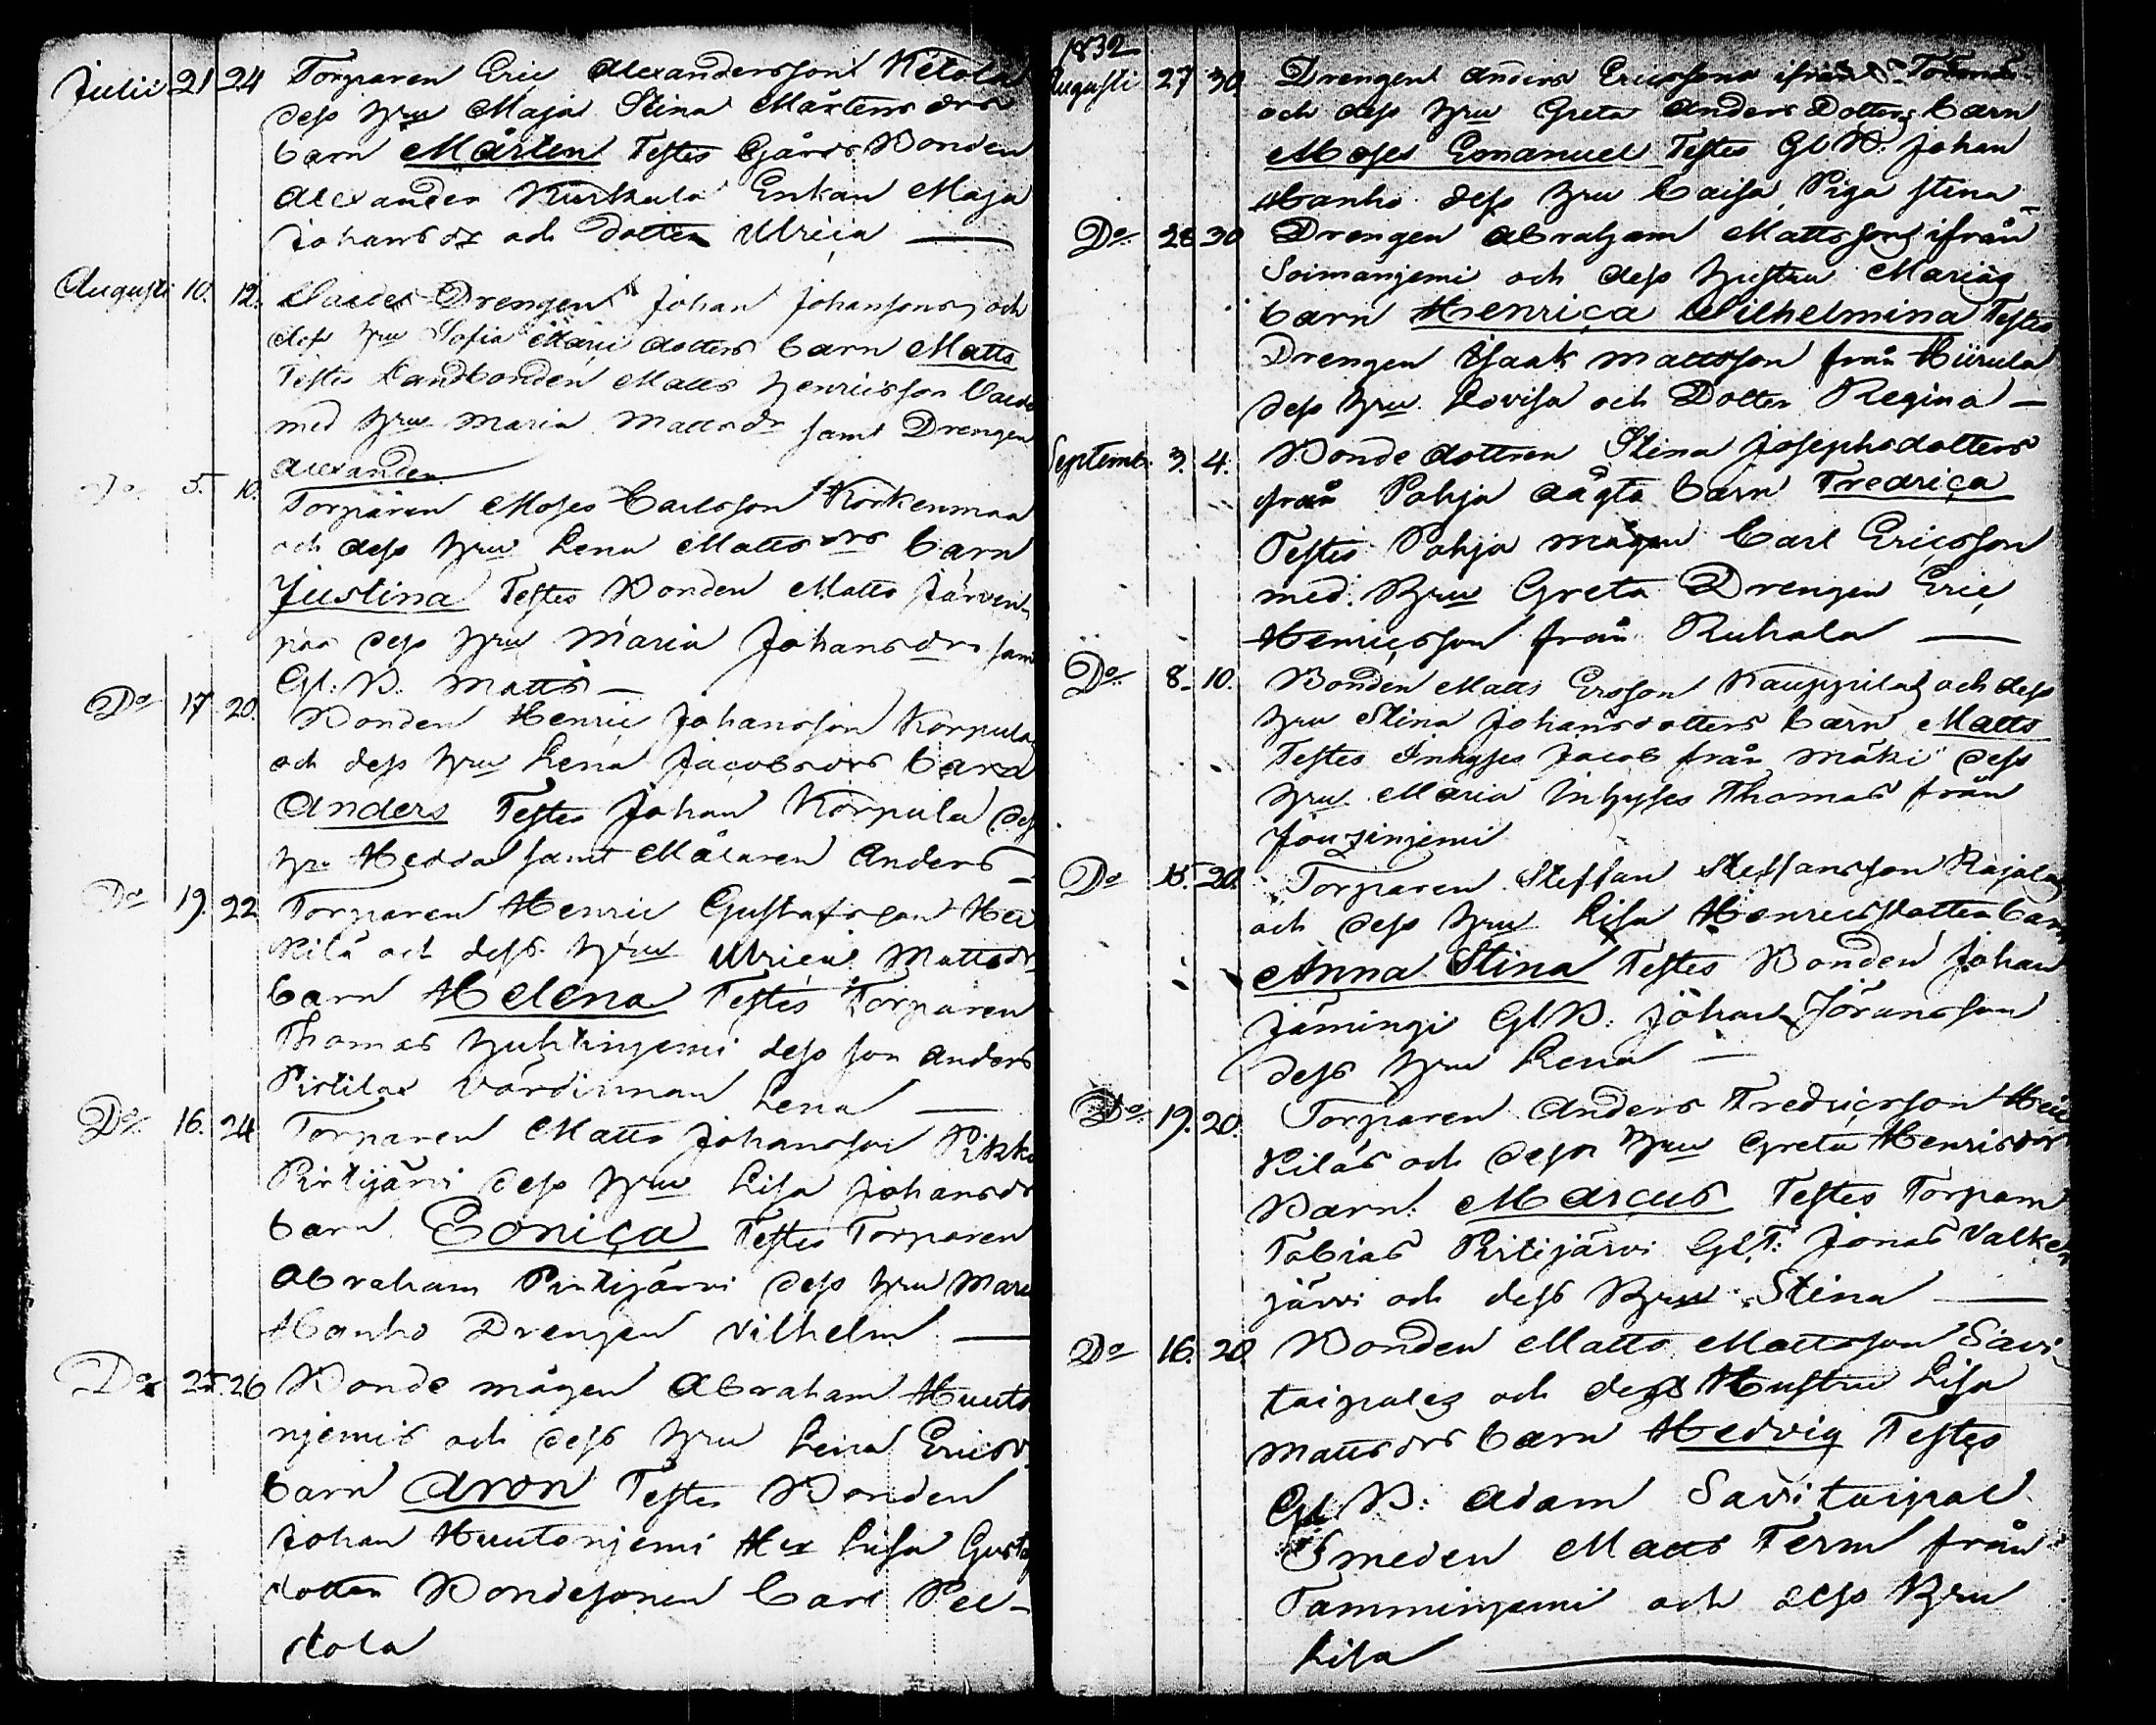 Julii 21 24 Torparen Eric Alexandersson Ketola
dess hru Maja Stina Mårtens drs
barn Mårten Testes Gårds Bonden
Alexander Enkan Maja
Johansdr och dotter Ulrica —
Augusti 10. 12. Drengen Johan Johanssons och
dess hru Sofia dotters barn Matts
Testes Landbonden Matts Henricsson
med hru Maria Mattsdr samt Drengen
Alexander
Do 5. 10. Torparen Moses Carlsson Korkenmaa
och dess hru Lena Mattsdrs barn
Justina Testes Bonden Matts Järven-
pää dess hru Maria Johansdr samt
Gl: B. Matts —
Do 17 20. Bonden Henric Johansson Korpulas
och dess hru Lena Jacobsdrs barn
Anders Testes Johan Korpula dess
hru Hedda samt Målaren Anders —
Do 19. 22 Torparen Henric Gustafsson Hei
kilä och dess hru Ulrica Mattsdr
barn Helena Testes Torparen
Thomas Huhtinjemi dess son Anders
Pirtilas värdinnan Lena —
Do 16. 24 Torparen Matts Johansson
Pirtijärvi dess hru Lisa Johansdr
barn Eonica Testes Torparen
Abraham Pirtijärvi dess hru Mari
Hanho Drengen Vilhelm —
Do 25. 26 Bonde mågen Abraham Huuto
njemis och dess hru Lena Ericsd.
barn Aron Testes Bonden
Johan Huutonjemi Lisa Gustaf
dotter Bondesonen Carl Pel-
kola
1832
Augusti 27 30. Drengen Anders Ericssons ifrån
och dess hru Greta Anders Dotters barn
Moses Emanuel Testes Gl B. Johan
Hanho dess hru Caisa, Piga Stina —
Do 28 30 Drengen Abraham Mattssons ifrån
Soimanjemi och dess hustru Marias
barn Henrica Wilhelmina Testes
Drengen Isaak Mattsson från Hiirula
dess hru Lovisa och Dotter Regina —
Septemb. 3. 4. Bonde dottren Stina Josephsdotters
från Pohja oägta barn Fredrica
Testes Pohja mågen Carl Ericsson
med Hru Greta Drengen Eric
Henricsson från Ruhala —
Do 8. 10. Bonden Matts Ersson Kauppilas och dess
hru Stina Johansdotters barn Matts
Testes Inhyses Jacob från Mäki dess
hru Maria Inhyses Thomas från
Jouzinjemi
Do 15. 20. Torparen Steffan Steffansson Rajalas
och dess hru Lisa Henricsdotter barn
Anna Stina Testes Bonden Johan
Jämingi Gl B: Johan Jöransson
dess hru Lena —
Do 19. 20. Torparen Anders Fredricsson Hei
kiläs och dess hru Greta Henrisdrs
Barn: Marcus Testes Torparn
Tobias Pirtijärvi Gl T: Jonas Valke
järvi och dess Hru Stina —
Do 16. 20. Bonden Matts Mattsson Savi-
taipales och dess Hustru Lisa
Mattsdrs barn Hedvig Testes
Gl B: Adam Savitaipal
Smeden Matts Term från
Tamminjemi och dess Hru
Lisa —